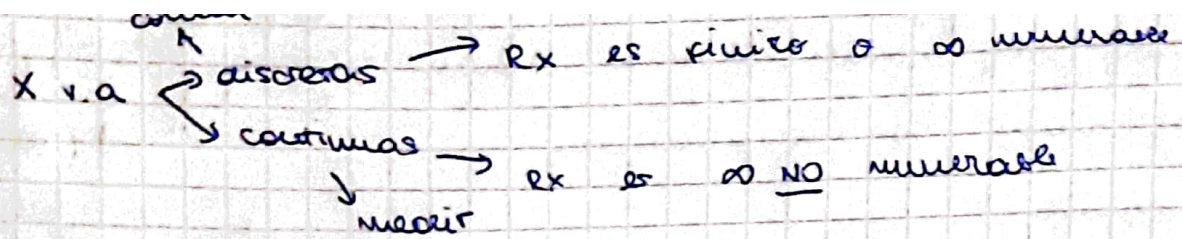 X v.a → discretas → Rx es finito o ∞ numerable
→ continuas → Rx es ∞ NO numerable
medir